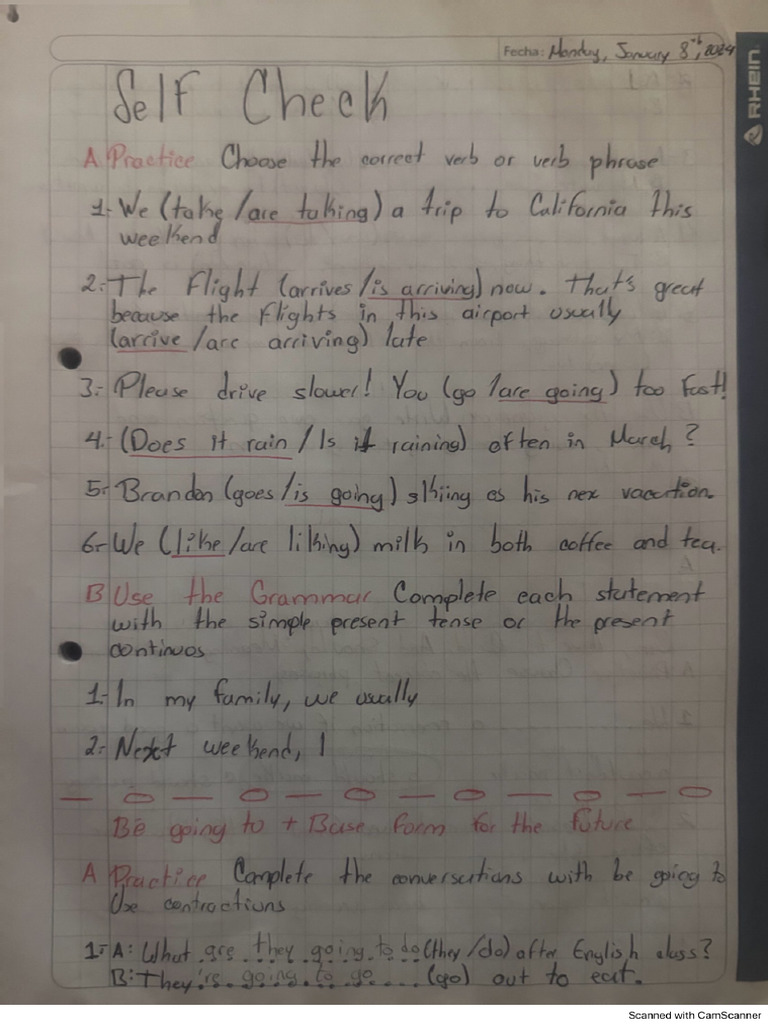 Fecha: Monday, January 8th, 2024
RHEIN
Self Check
A Practice Choose the correct verb or verb phrase
1- We (take / are taking) a trip to California this
weekend
2- The Flight (arrives / is arriving) now. That's great
because the flights in this airport usually
(arrive / are arriving) late
3- Please drive slower! You (go / are going) too Fast!
4- (Does it rain / Is it raining) often in March?
5- Brandon (goes / is going) skiing os his nex vacation.
6- We (like / are liking) milk in both coffee and tea.
B Use the Grammar Complete each statement
with the simple present tense or the present
continuos
1- In my family, we usually
2- Next weekend, I
Be going to + Base form for the future
A Practice Complete the conversations with be going to
Use contractions
1- A: What are they going to do (they / do) after English class?
B: They're going to go (go) out to eat.
Scanned with CamScanner